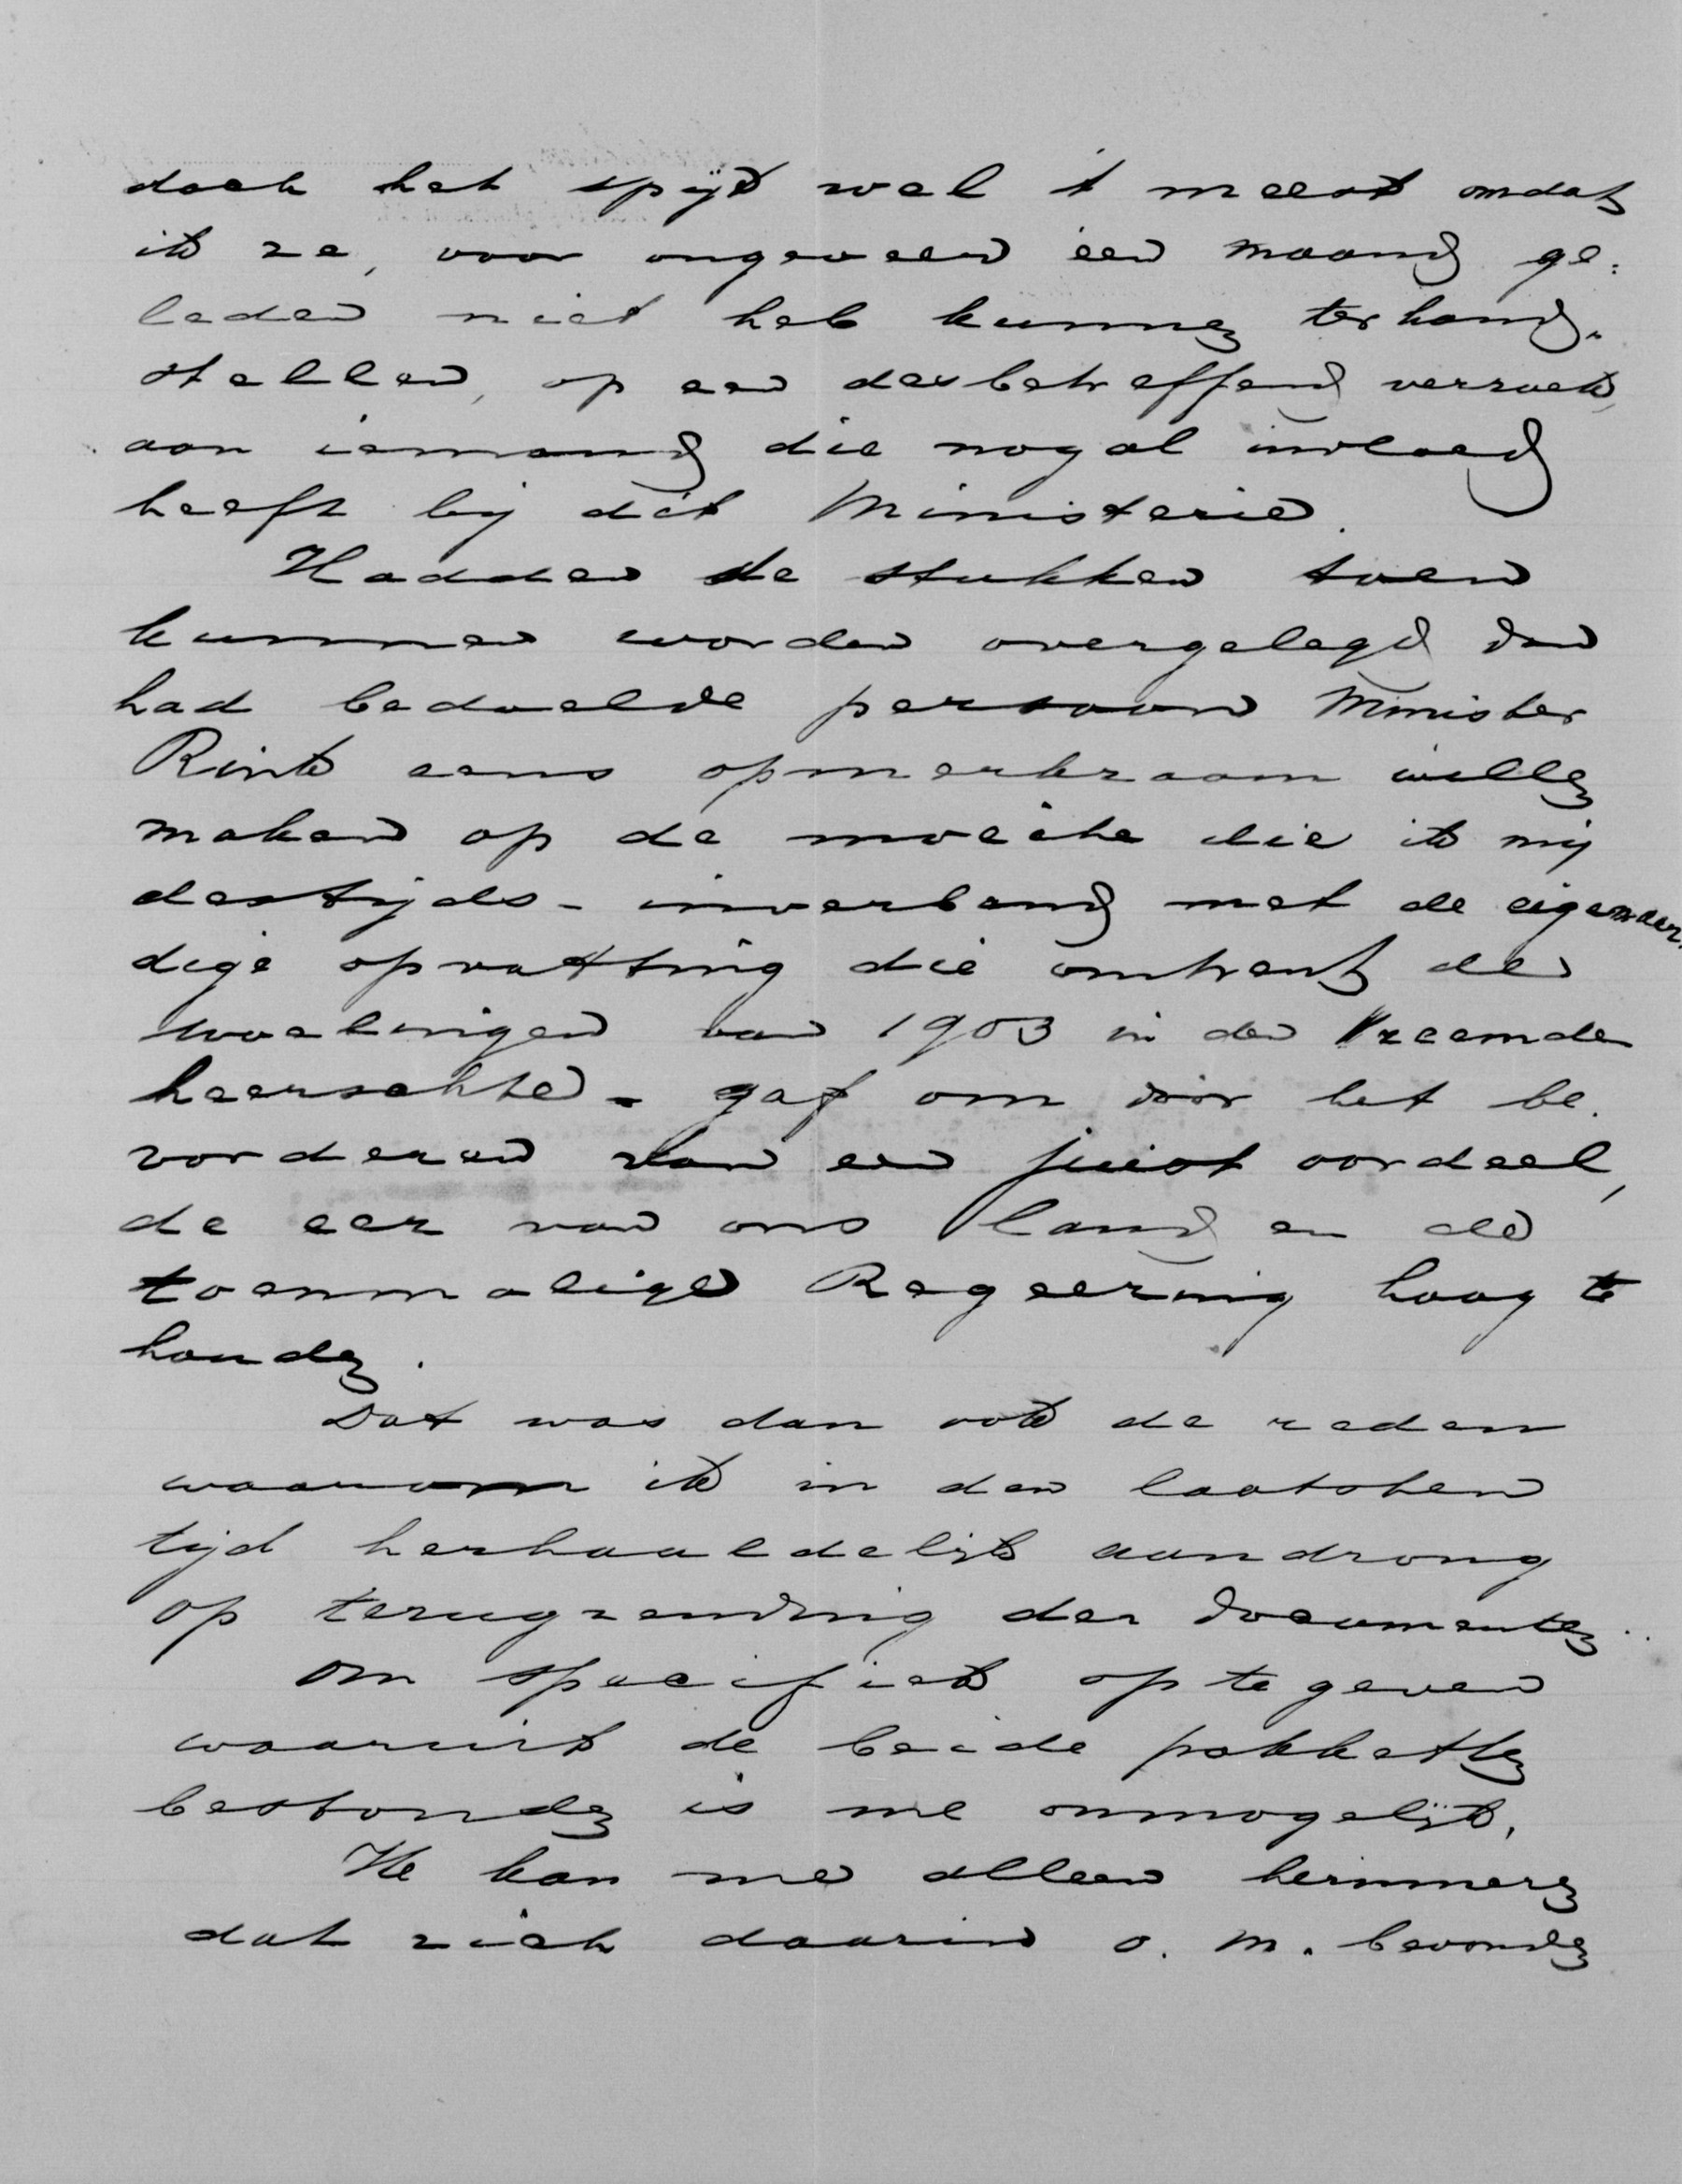 doch het spijt wel 't meest omdat
ik ze, voor ongeveer één maand ge:
leden niet heb kunnen ter hand.
stellen, op een desbetreffend verzoek,
aan iemand die nogal invloed
heeft bij dit Ministerie.
Hadden de stukken toen
kunnen worden overgelegd dan
had bedoelde persoon Minister
Rink eens opmerkzaam willen
maken op de moeite die ik mij
destijds - in verband met de eigenaar.
dige opvatting die omtrent de
woelingen van 1903 in den Vreemde
heerschte - gaf om door het be.
vorderen van een juist oordeel,
de eer van ons land en de
toenmalige Regeering hoog te
houden.
Dat was dan ook de reden
waarom ik in den laatsten
tijd herhaaldelijk aandrong
op terugzending der documenten.
Om specifiek op te geven
waaruit de beide pakketten
bestonden is me onmogelijk.
Ik kan me alleen herinneren
dat zich daarin o. m. bevonden